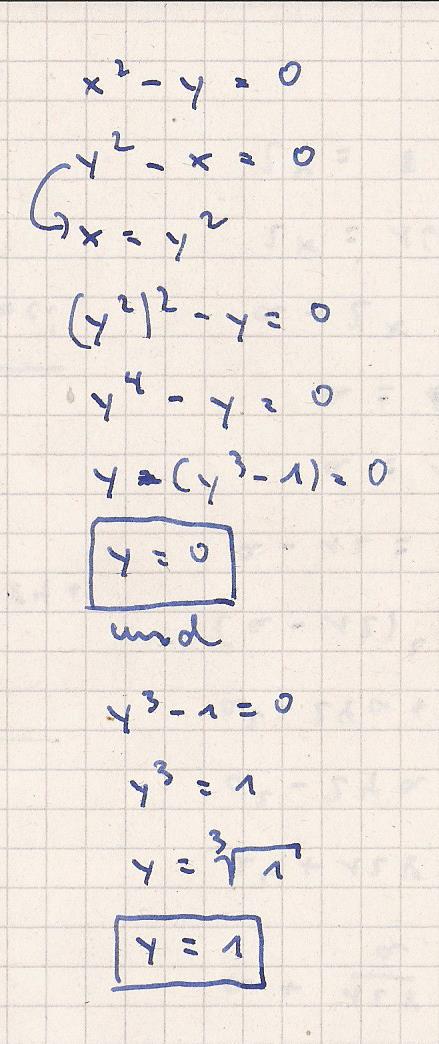 x² - y = 0
y² - x = 0
x = y²
(y²)² - y = 0
y⁴ - y = 0
y · (y³ - 1) = 0
y = 0
und
y³ - 1 = 0
y³ = 1
y = ³√1
y = 1